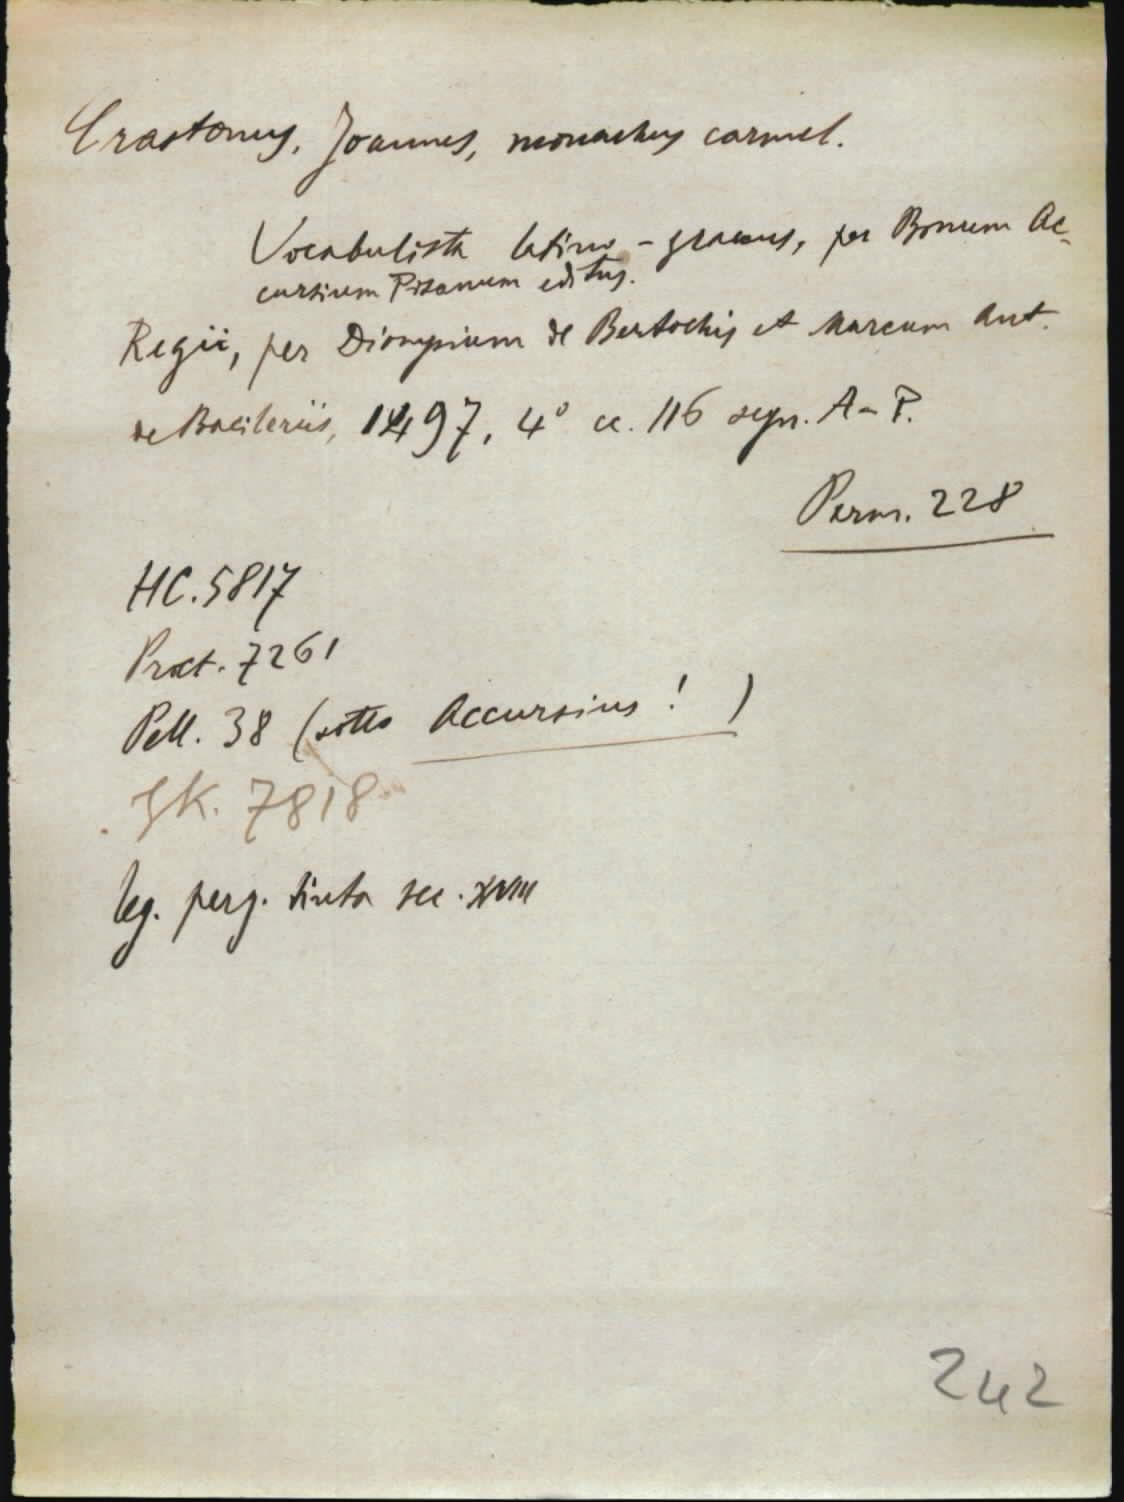 Crastonus, Joannes, monachus carmel.
Vocabulista latino-graecus, per Bonum Ac-
cursium Pisanum editus.
Regii, per Dionysium de Bertochis et Marcum Ant.
de Bacileriis, 1497, 4° cc. 116 segn. A-P.
Perm. 228
HC. 5817
Proct. 7261
Pell. 38 (sotto Accursius! )
GK. 7818
leg. perg. tinta sec. XVIII
242